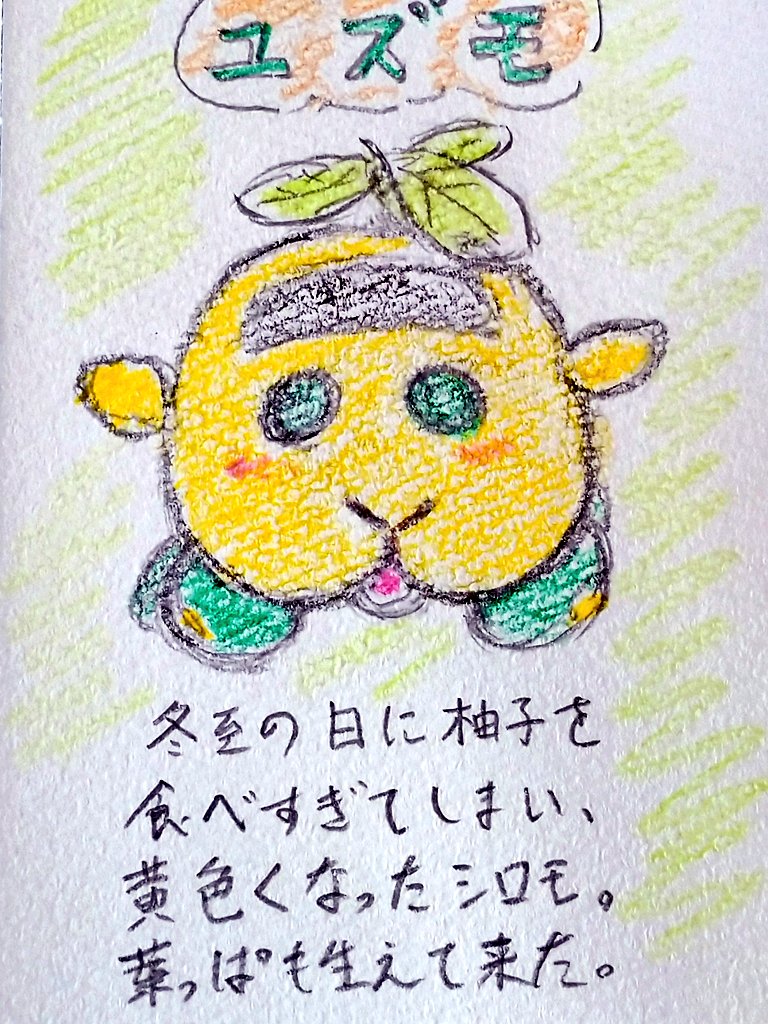 ユズモ
冬至の日に柚子を
食べすぎてしまい、
黄色くなったシロモ。
葉っぱも生えて来た。